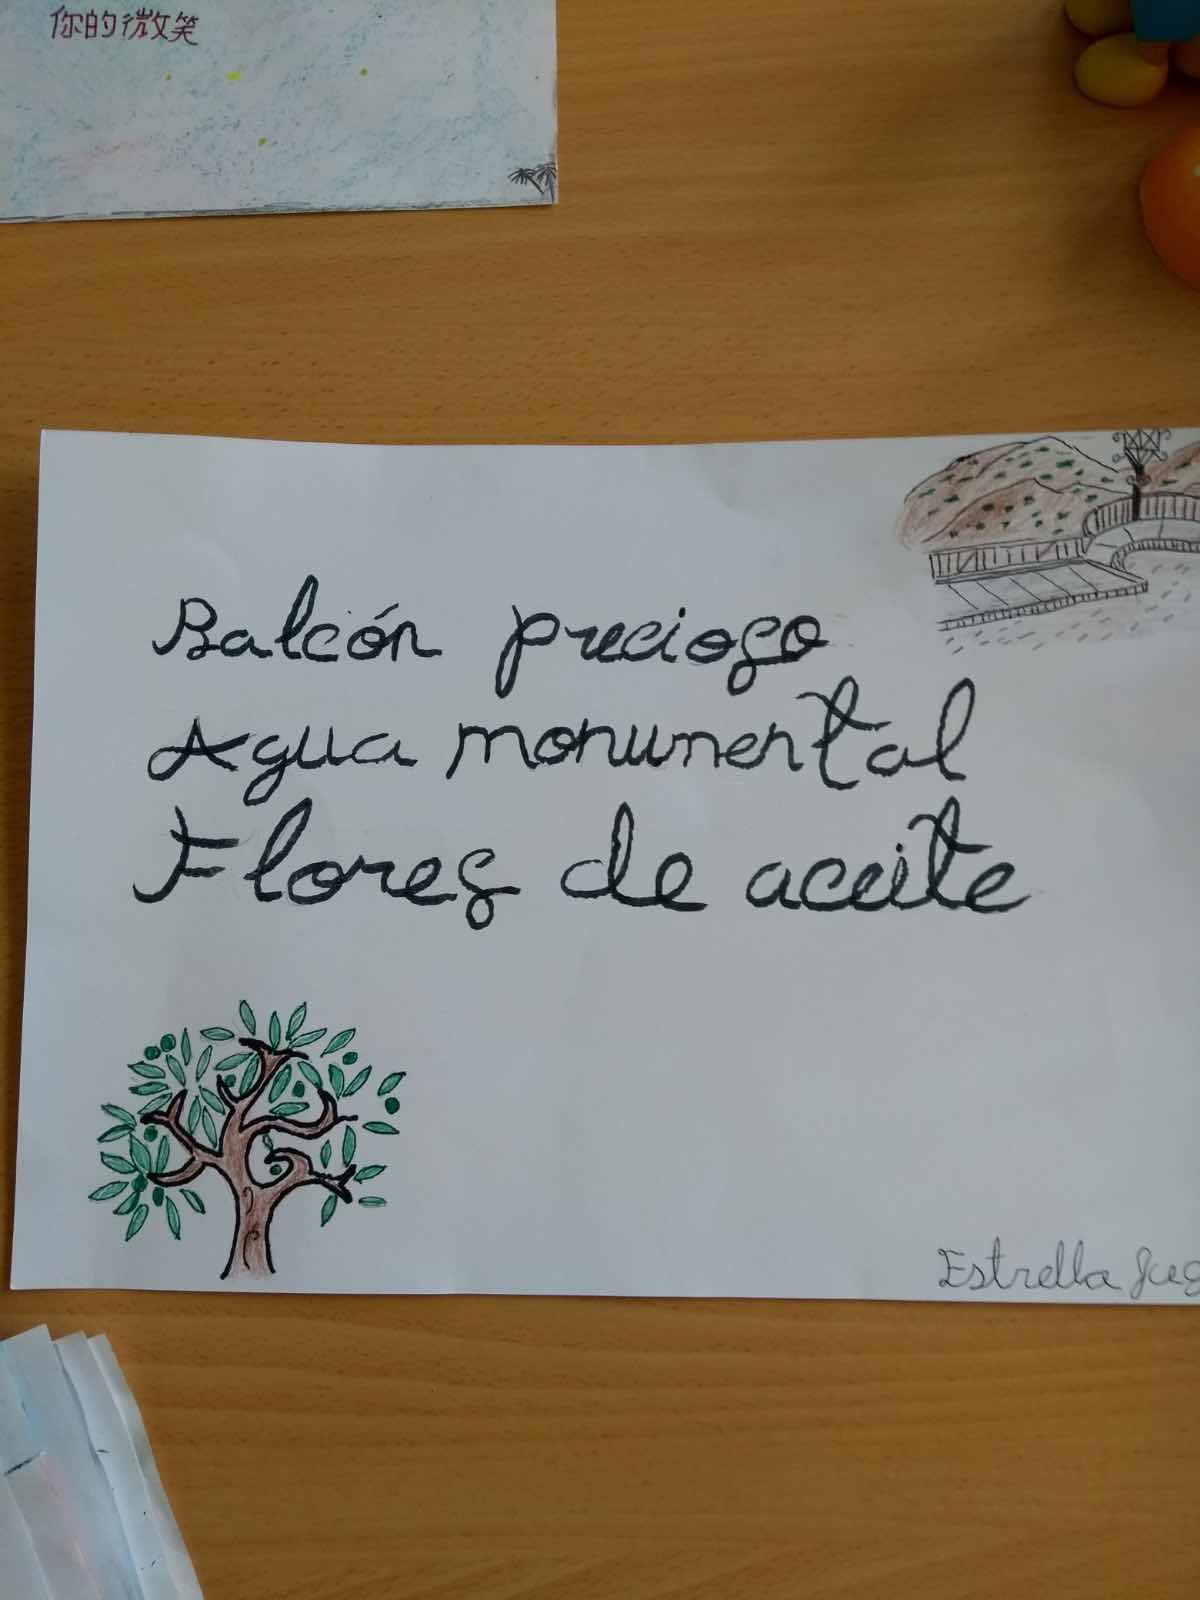 你的微笑
Balcón precioso
Agua monumental
Flores de aceite
Estrella